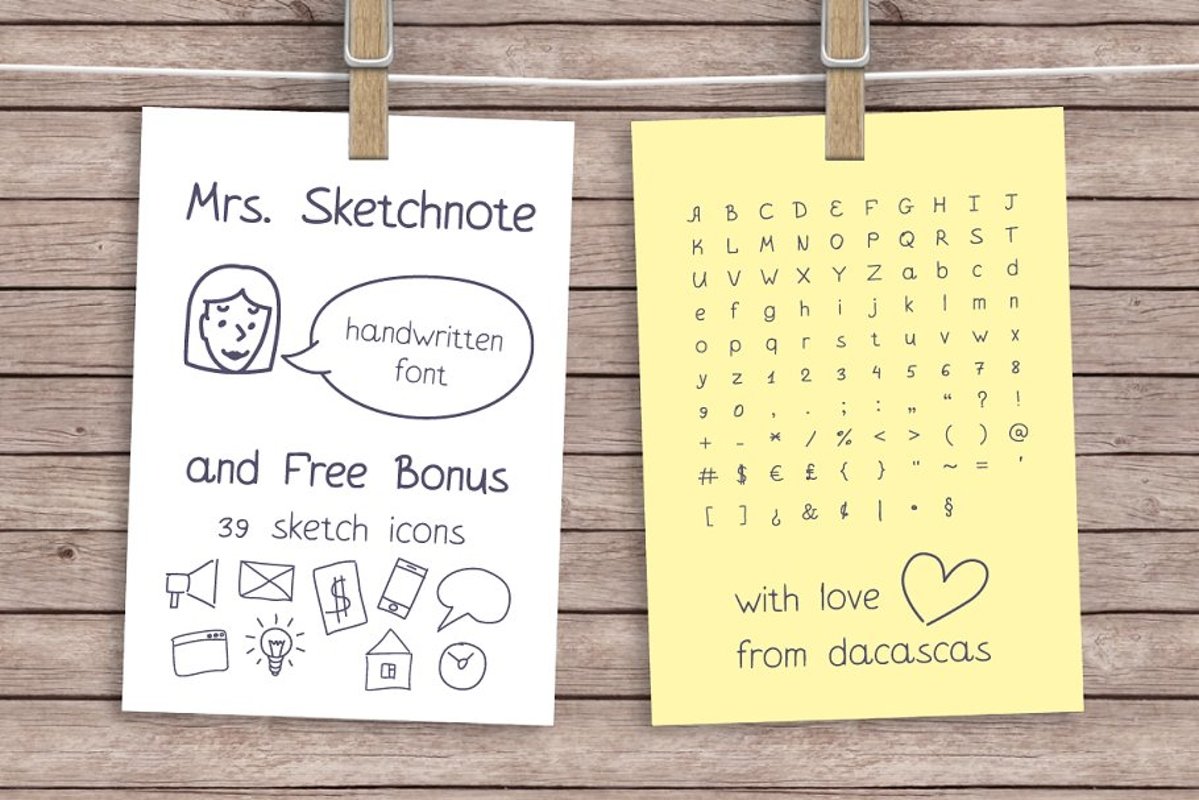 Mrs. Sketchnote
handwritten
font
and Free Bonus
39 sketch icons
$
A B C D E F G H I J
K L M N O P Q R S T
U V W X Y Z a b c d
e f g h i j k l m n
o p q r s t u v w x
y z 1 2 3 4 5 6 7 8
9 0 , . ; : „ “ ? !
+ - * / % < > ( ) @
# $ € £ { } " ~ = '
[ ] ¿ & ¢ | • §
with love
from dacascas